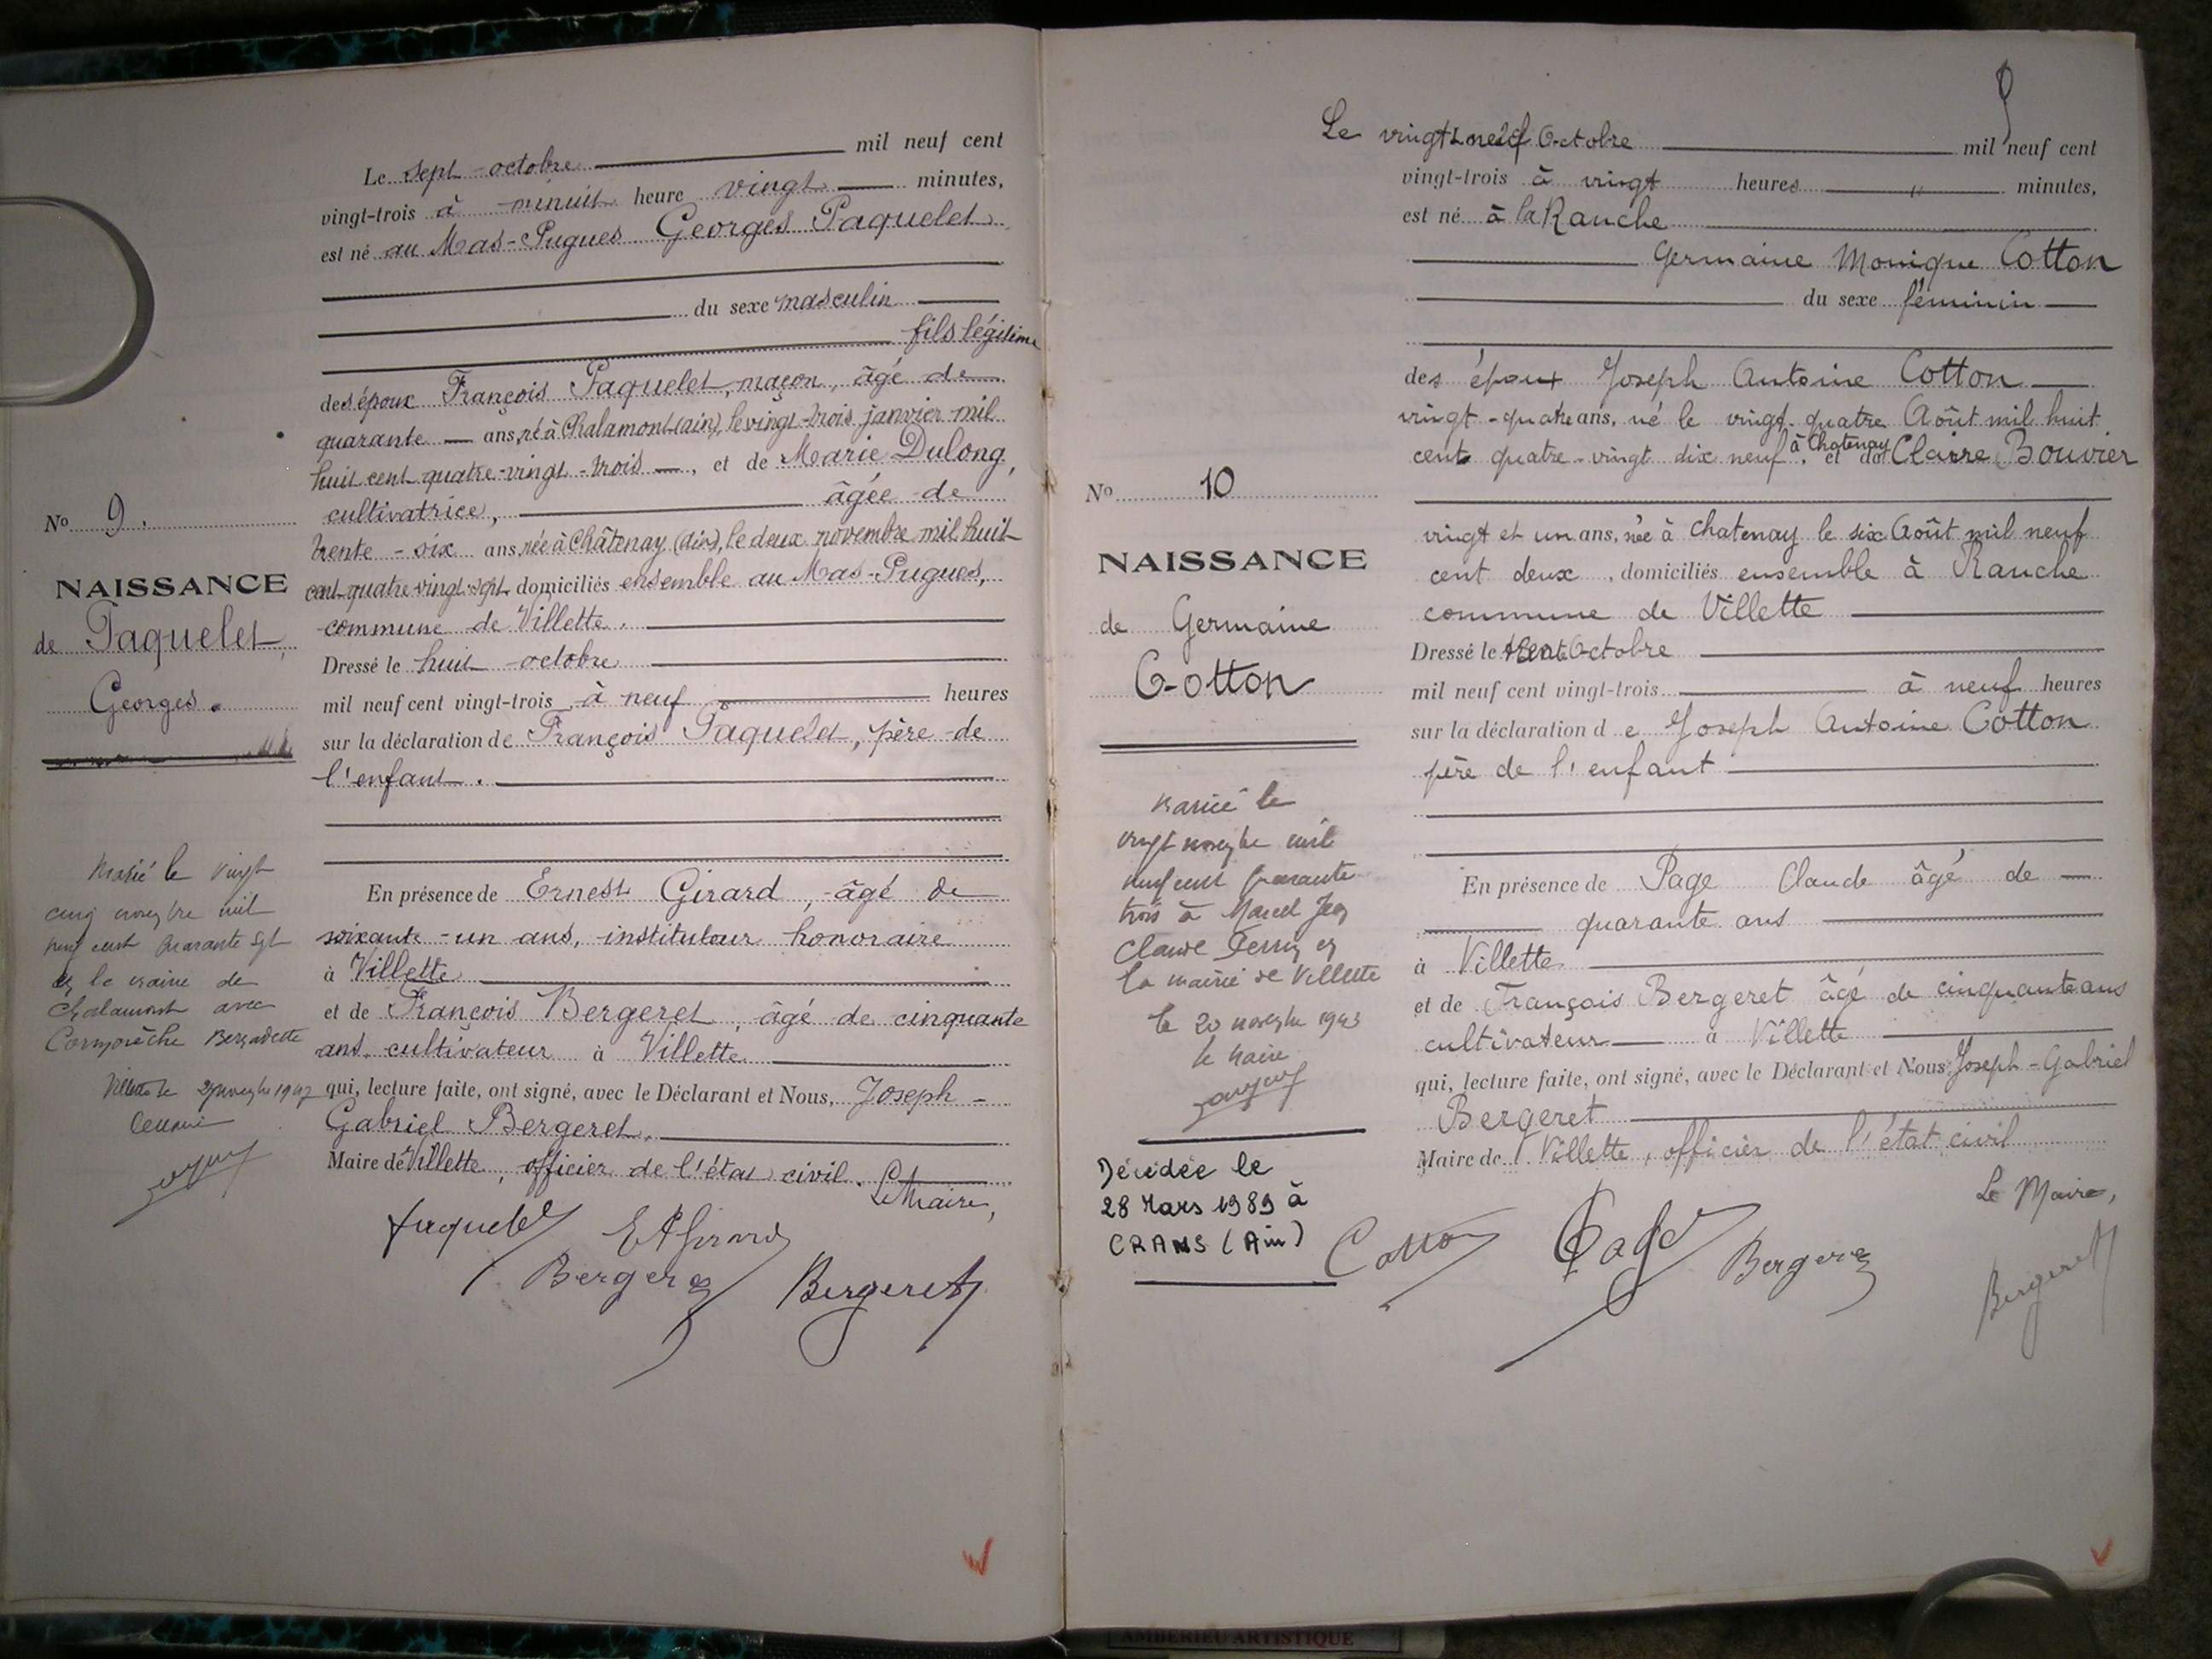 Le sept octobre mil neuf cent
vingt-trois à minuit heure vingt minutes,
est né au Mas-Pugues Georges Paquelet
du sexe masculin
fils légitime
des époux François Paquelet, maçon, âgé de
quarante ans, né à Chalamont (ain), le vingt-trois janvier mil
huit cent quatre-vingt-trois, et de Marie Dulong,
cultivatrice, âgée de
trente-six ans, née à Châtenay (Ain), le deux novembre mil huit
cent quatre-vingt-sept domiciliés ensemble au Mas-Pugues,
commune de Villette.
Dressé le huit octobre
mil neuf cent vingt-trois à neuf heures
sur la déclaration de François Paquelet, père de
l'enfant.
En présence de Ernest Girard, âgé de
soixante-un ans, instituteur honoraire
à Villette
et de François Bergeret, âgé de cinquante
ans, cultivateur à Villette
qui, lecture faite, ont signé, avec le Déclarant et Nous, Joseph-
Gabriel Bergeret,
Maire de Villette, officier de l'état civil. Le Maire,
Paquelet EA Girard
Bergeret Bergeret
No 9.
NAISSANCE
de Paquelet,
Georges.
Marié le vingt
cinq novembre mil
neuf cent quarante sept
à la mairie de
Chalamont avec
Bernadette
Villette le novembre 1947
Le maire
Le vingt neuf Octobre mil neuf cent
vingt-trois à vingt heures " minutes,
est né à la Ranche
Germaine Monique Cotton
du sexe féminin
des époux Joseph Antoine Cotton
vingt-quatre ans, né le vingt-quatre Août mil huit
cent quatre-vingt dix neuf, à Chatenay et de Claire Bouvier
vingt et un ans, née à Chatenay le six Août mil neuf
cent deux, domiciliés ensemble à Ranche
commune de Villette
Dressé le trente Octobre
mil neuf cent vingt-trois à neuf heures
sur la déclaration de Joseph Antoine Cotton
père de l'enfant
En présence de Page Claude âgé de
quarante ans
à Villette
et de François Bergeret âgé de cinquante ans
cultivateur à Villette
qui, lecture faite, ont signé, avec le Déclarant et Nous Joseph-Gabriel
Bergeret
Maire de Villette, officier de l'état civil
Le Maire,
Cotton Page Bergeret Bergeret
No 10
NAISSANCE
de Germaine
Cotton
Mariée le
vingt novembre mil
neuf cent quarante
trois à Marcel Jean
Claude à
la mairie de Villette
le 20 novembre 1943
le Maire
Décédée le
28 Mars 1989 à
CRANS (Ain)
AMBERIEU ARTISTIQUE